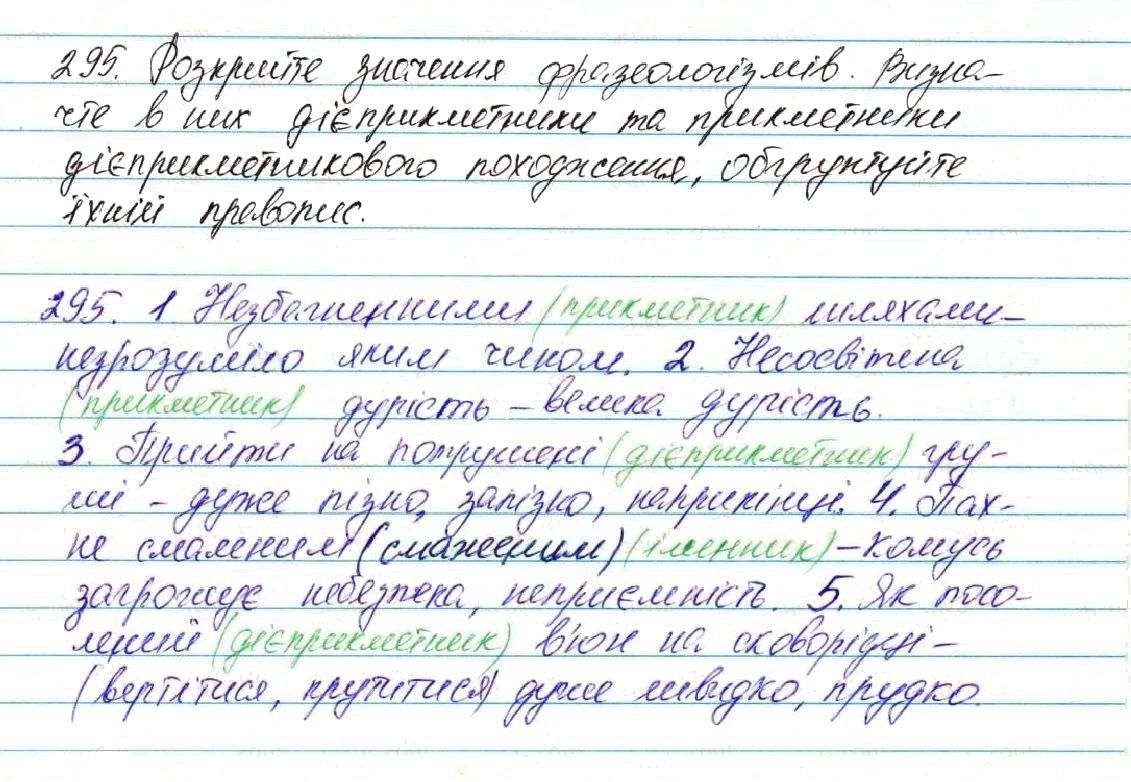 295. Розкрийте значення фразеологізмів. Визна-
чте в них дієприкметники та прикметники
дієприкметникового походження, обґрунтуйте
їхній правопис.
295. 1 Незбагненними (прикметник) шляхами-
незрозуміло яким чином. 2. Несосвітена
(прикметник) дурість – велика дурість.
3. Прийти на потрушені (дієприкметник) гру-
ші – дуже пізно, запізно, наприкінці. 4. Пах-
не смаленим (смаженим) (іменник) – комусь
загрожує небезпека, неприємність. 5. Як посо-
лений (дієприкметник) в'юн на сковорідці –
(вертітися, крутитися) дуже швидко, прудко.